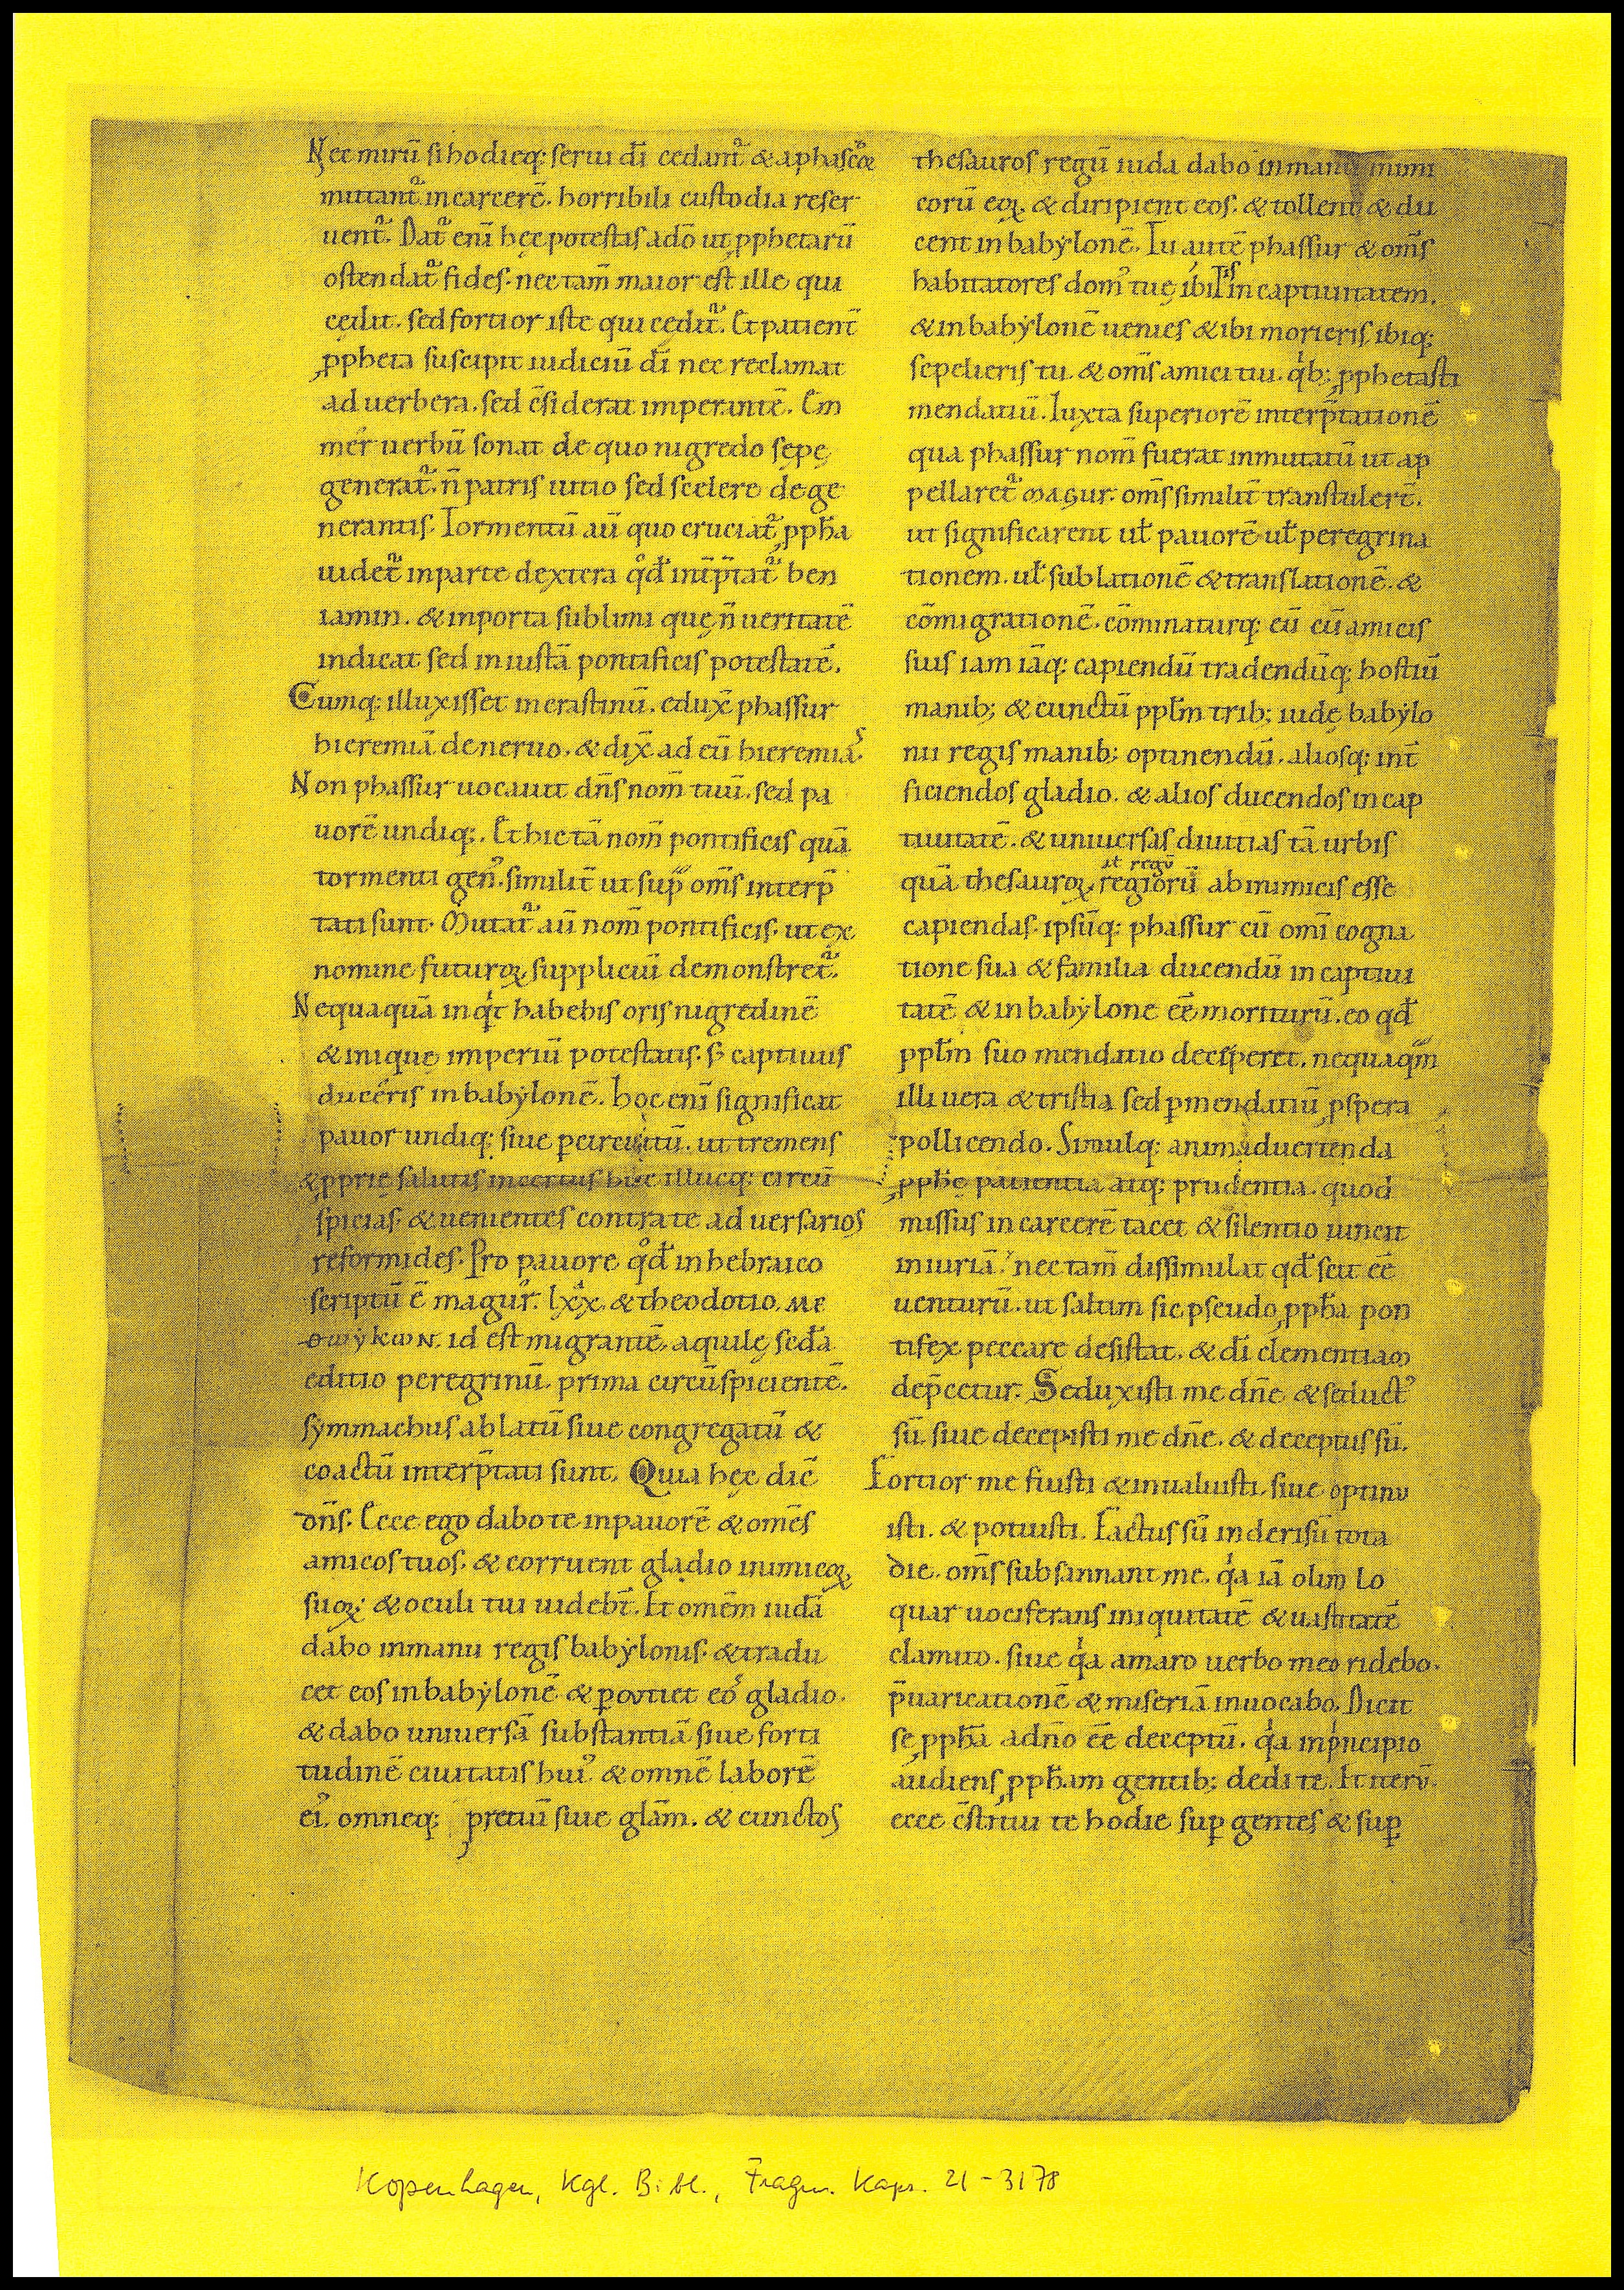 Nec mirū si hodieq; serui dī cedant᷑ & a phascoꝝ
mittant᷑ in carcerē. horribili custodia reser
uent᷑. Dat᷑ enī hęc potestas a dō ut ꝓphetarū
ostendat᷑ fides. nec tam̄ maior est ille qui
cędit. sed fortior iste qui cędit᷑. Et patient̄
ꝓpheta suscipit iudiciū dī nec reclamat
ad uerbera. sed c̄siderat imperantē. Em
mer uerbū sonat de quo nigredo sępe
generat᷑. n̄ patris uitio sed scelere dege
nerantis. Tormentū aū quo cruciat᷑ ꝓph̄a
uidet᷑ in parte dextera qͦd̄ int̄p̄tat᷑ ben
iamin. & in porta sublimi quę n̄ ueritatē
indicat sed iniustā pontificis potestatē.
Cumq; illuxisset in crastinū. edux̄ phassur
hieremiā de neruo. & dix̄ ad eū hieremias.
Non phassur uocauit dn̄s nom̄ tuū. sed pa
uorē undiq;. Et hic tā nom̄ pontificis quā
tormenti gen᷒. similit̄ ut supᷓ om̄s interp̄
tati sunt. Mutat᷑ aū nom̄ pontificis. ut ex
nomine futuroꝝ suppliciū demonstret᷑.
Nequaquā inqͥt habebis oris nigredinē
& inique imperiū potestatis. s; captiuus
duceris in babẏlonē. hoc enī significat
pauor undiq; siue ꝑ circuitū. ut tremens
& ꝓprię salutis incertus huc illucq; circū
spicias. & uenientes contra te aduersarios
reformides. Pro pauore qͦd̄ in hebraico
scriptū ē magur. lxx. & theodotio. ΜΕ
ΘωẏΚωΝ. id est migrantē. aquilę sed̄a
editio peregrinū. prima circūspicientē.
sẏmmachus ablatū siue congregatū &
coactū interp̄tati sunt. Quia hęc dic̄
dn̄s. Ecce ego dabo te in pauorē & omēs
amicos tuos. & corruent gladio inimicoꝝ
suoꝝ. & oculi tui uidebt̄. Et omēm iudā
dabo in manu regis babẏlonis. & tradu
cet eos in babẏlonē & ꝑcutiet eos gladio.
& dabo uniuersā substantiā siue forti
tudinē ciuitatis hui᷒ & omnē laborē
ei᷒. omneq; pretiū siue glām. & cunctos
thesauros regū iuda dabo in manu inimi
corū eoꝝ. & diripient eos. & tollent & du
cent in babẏlonē. Tu autē phassur & om̄s
habitatores dom᷒ tuę ibitis in captiuitatem.
& in babẏlonē uenies & ibi morieris. ibiq;
sepelieris tu. & om̄s amici tui. qͥb; ꝓphetasti
mendatiū. Iuxta superiorē interp̄tationē
qua phassur nom̄ fuerat inmutatū ut ap
pellaret᷑ magur. om̄s similit̄ transtulert̄.
ut significarent ul̄ pauorē ul̄ peregrina
tionem. ul̄ sublationē & translationē. &
cōmigrationē. cōminaturq; eū cū amicis
suis iam iāq; capiendū tradendūq; hostiū
manib; & cunctū ppl̄m trib; iudę babẏlo
nii regis manib; optinendū. aliosq; int̄
ficiendos gladio. & alios ducendos in cap
tiuitatē. & uniuersas diuitias tā urbis
ut regū
quā thesauroꝝ regiorū ab inimicis esse
capiendas. ipsūq; phassur cū omī cogna
tione sua & familia ducendū in captiui
tatē & in babẏlone eē moriturū. eo qd̄
ppl̄m suo mendatio deciperet. nequaqᷓm
illi uera & tristia sed ꝑ mendatiū ꝓspera
pollicendo. Simulq; animaduertenda
ꝓph̄ę patientia atq; prudentia. quod
missus in carcerē tacet & silentio uincit
iniuriā. nec tam̄ dissimulat qd̄ scit eē
uenturū. ut saltim sic pseudo ꝓph̄a pon
tifex peccare desistat. & dī clementiam
dep̄cetur. Seduxisti me dn̄e & seduct᷒
sū. siue decepisti me dn̄e. & deceptus sū.
Fortior me fuisti & inualuisti. siue optinu
isti. & potuisti. Factus sū in derisū tota
die. om̄s subsannant me. qͥa iā olim lo
quar uociferans iniquitatē & uastitatē
clamito. siue qͥa amaro uerbo meo ridebo.
p̄uaricationē & miseriā inuocabo. Dicit
se ꝓph̄ā a dn̄o eē deceptū. qͥa in pͥncipio
audiens ꝓph̄am gentib; dedi te. Et iterū.
ecce c̄stitui te hodie suꝑ gentes & suꝑ
Kopenhagen, Kgl. Bibl., Fragm. Kaps. 21-3178